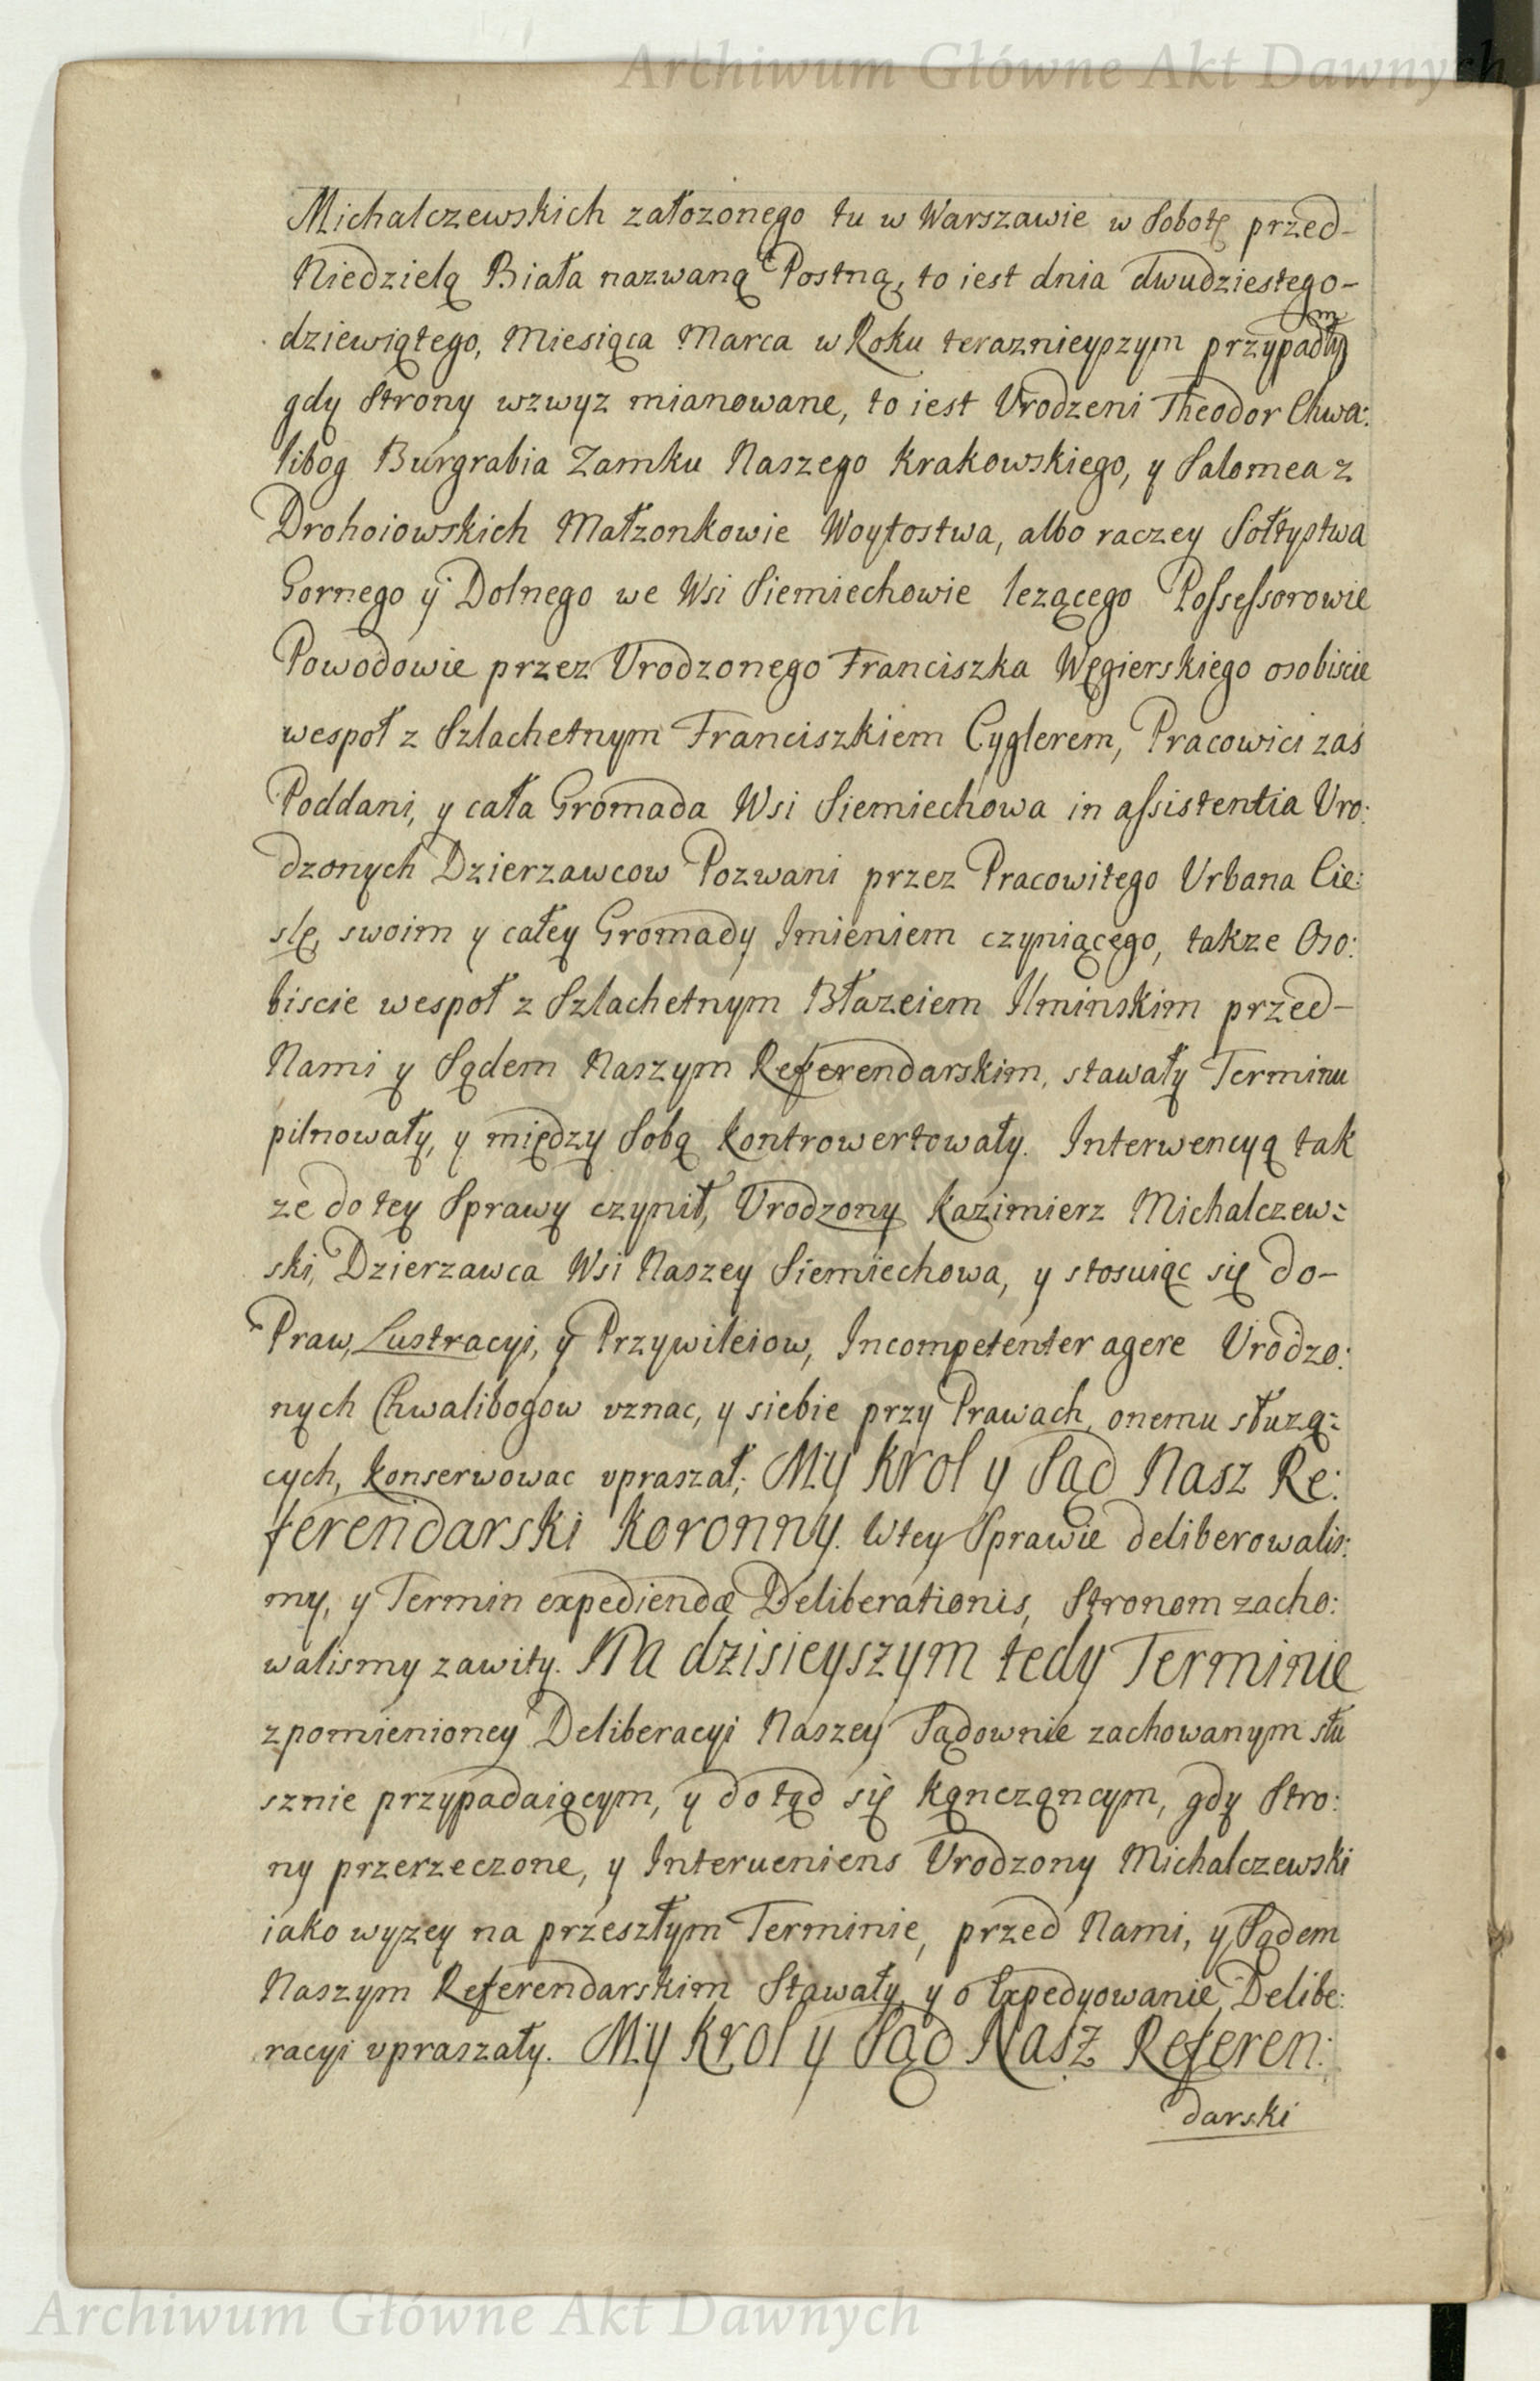 Archiwum Główne Akt Dawnych
Michalczewskich załozonego tu w Warszawie w Sobotę przed-
Niedzielą Biała nazwaną Postną, to iest dnia dwudziestego-
dziewiątego, Miesiąca Marca w Roku teraznieyszym przypadłym
gdy Strony wzwyz mianowane, to iest Urodzeni Theodor Chwa:
libog Burgrabia Zamku Naszego Krakowskiego, y Salomea z
Drohoiowskich Małzonkowie Woytostwa, albo raczey Sołtystwa
Gornego y Dolnego we Wsi Siemiechowie lezącego Possessorowie
Powodowie przez Urodzonego Franciszka Węgierskiego osobiscie
wespoł z Szlachetnym Franciszkiem Cyglerem, Pracowici zas
Poddani, y cała Gromada Wsi Siemiechowa in assistentia Uro:
dzonych Dzierzawcow Pozwani przez Pracowitego Urbana Cie:
slę, swoim y całey Gromady Imieniem czyniącego, takze Oso:
biscie wespoł z Szlachetnym Błazeiem Ilminskim przed-
Nami y Sądem Naszym Referendarskim, stawały Terminu
pilnowały, y między Sobą kontrowertowały. Interwencyą tak
ze do tey Sprawy czynił, Urodzony Kazimierz Michalczew:
ski, Dzierzawca Wsi Naszey Siemiechowa, y stosuiąc się do-
Praw, Lustracyi, y Przywileiow, Incompetenter agere Urodzo:
nych Chwalibogow uznac, y siebie przy Prawach, onemu słuzą:
cych, konserwowac upraszał; My Krol y Sąd Nasz Re:
ferendarski Koronny. W tey Sprawie deliberowalis:
my, y Termin expediendæ Deliberationis, Stronom zacho:
walismy zawity. Na dzisieyszym tedy Terminie
z pomienioney Deliberacyi Naszey Sądownie zachowanym słu
sznie przypadaiącym, y do tąd się kąnczącym, gdy Stro:
ny przerzeczone, y Interueniens Urodzony Michalczewski
iako wyzey na przeszłym Terminie, przed Nami, y Sądem
Naszym Referendarskim Stawały, y o Expedyowanie Delibe:
racyi upraszały. My Krol y Sąd Nasz Referen:
darski
Archiwum Główne Akt Dawnych